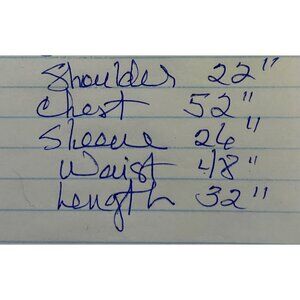 Shoulder 22"
Chest 52"
Sleeve 26"
Waist 48"
Length 32"